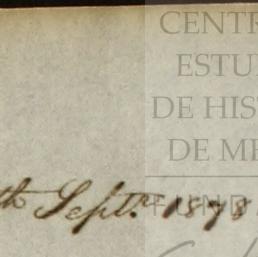 CENTR
ESTU
DE HIS
DE ME
th Septr. 1878
FUNDA